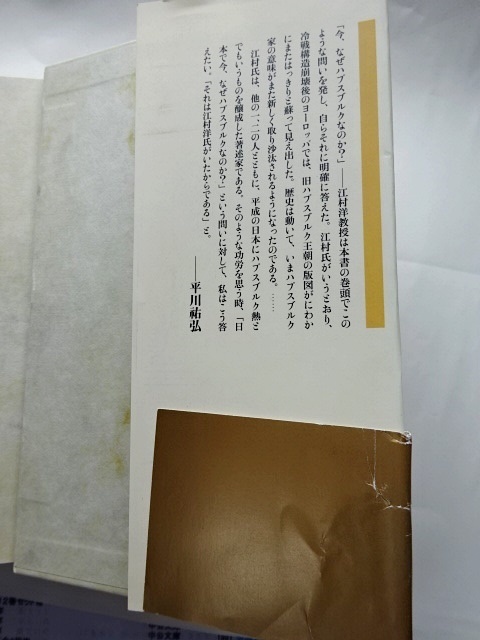 「今、なぜハプスブルクなのか？」――江村洋教授は本書の巻頭でこの
ような問いを発し、自らそれに明確に答えた。江村氏がいうとおり、
冷戦構造崩壊後のヨーロッパでは、旧ハプスブルク王朝の版図がにわか
にまたはっきりと蘇って見え出した。歴史は動いて、いまハプスブルク
家の意味がまた新しく取り沙汰されるようになったのである。……
江村氏は、他の一、二の人とともに、平成の日本にハプスブルク熱と
でもいうものを醸成した著述家である。そのような功労を思う時、「日
本で今、なぜハプスブルクなのか？」という問いに対して、私はこう答
えたい。「それは江村洋氏がいたからである」と。
――平川祐弘